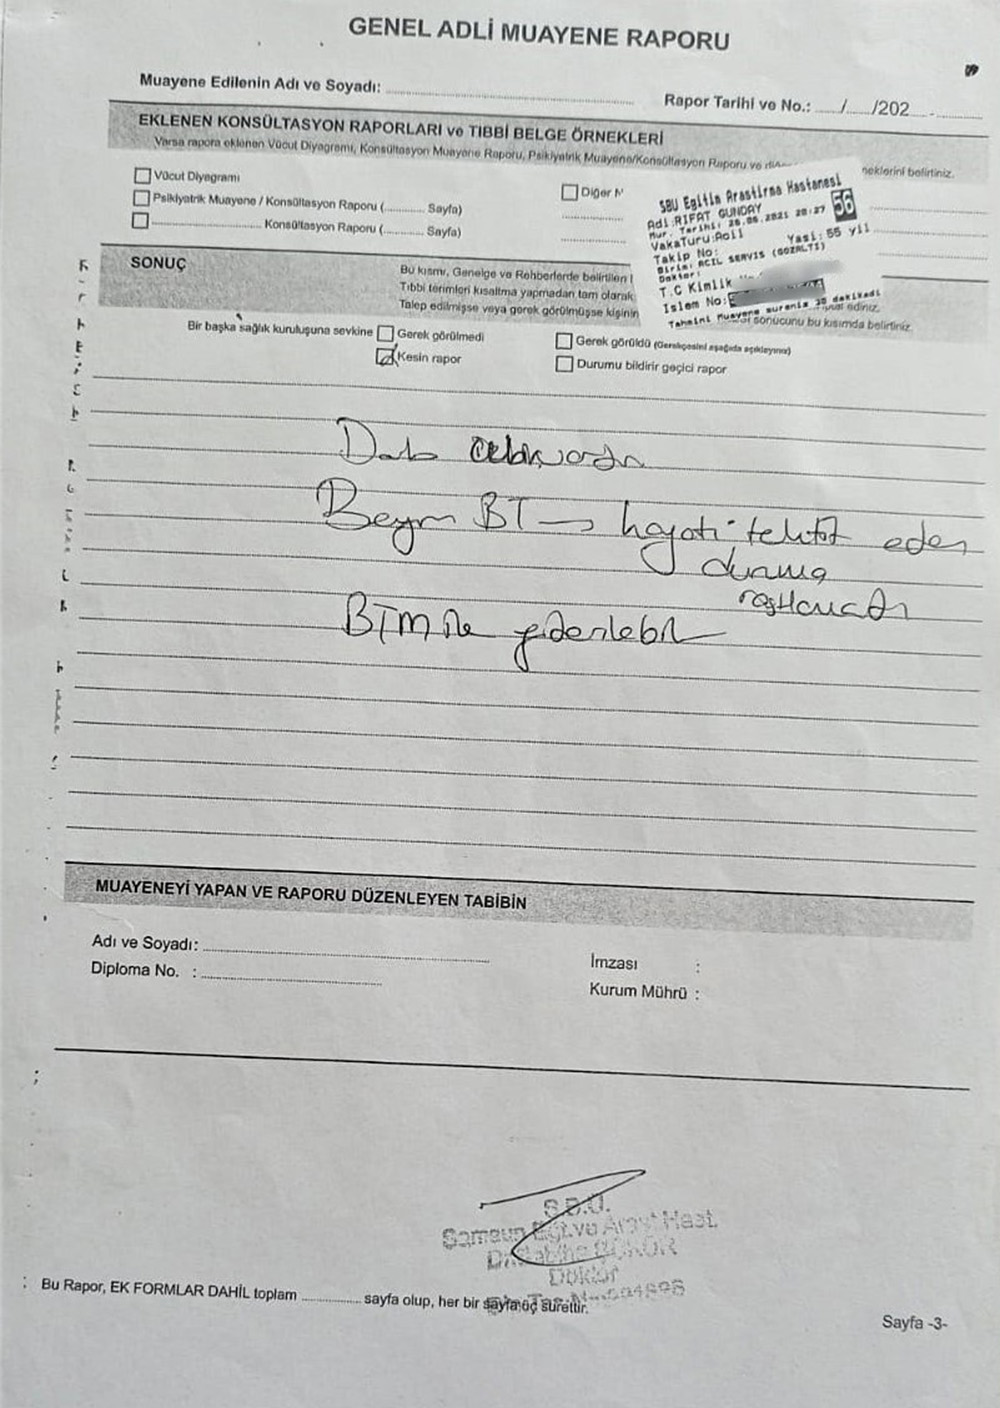 GENEL ADLİ MUAYENE RAPORU
Muayene Edilenin Adı ve Soyadı:
Rapor Tarihi ve No.: ...../....../202 .... - ............
EKLENEN KONSÜLTASYON RAPORLARI ve TIBBİ BELGE ÖRNEKLERİ
Varsa rapora eklenen Vücut Diyagramı, Konsültasyon Muayene Raporu, Psikiyatrik Muayene/Konsültasyon Raporu ve neklerini belirtiniz.
Vücut Diyagramı
Psikiyatrik Muayene / Konsültasyon Raporu (............. Sayfa)
Diğer
........................... Konsültasyon Raporu (............. Sayfa)
SBU Egitim Arastirma Hastanesi
Adi:RIFAT GUNDAY
Mur. Tarihi: 26.06.2021 20:27
56
VakaTuru:Adli Yasi: 55 yil
Takip No:
Birim: ACIL SERVIS (GOZALTI)
Doktor:
T.C Kimlik
Islem No:
Tahmini Muayene sureniz 30 dakikadi
SONUÇ
Bu kısmı, Genelge ve Rehberlerde belirtilen
Tıbbi terimleri kısaltma yapmadan tam olarak
Talep edilmişse veya gerek görülmüşse kişinin sonucunu bu kısımda belirtiniz.
Bir başka sağlık kuruluşuna sevkine
Gerek görülmedi
Gerek görüldü (Gerekçesini aşağıda açıklayınız)
Kesin rapor
Durumu bildirir geçici rapor
Beyin BT → hayati tehdit eden
duruma
rastlanmadı
BTM ile giderilebilir
MUAYENEYİ YAPAN VE RAPORU DÜZENLEYEN TABİBİN
Adı ve Soyadı:
İmzası :
Diploma No. :
Kurum Mührü :
S.B.Ü.
Samsun Eğt.ve Araşt Hast.
Doktor
Bu Rapor, EK FORMLAR DAHİL toplam .............. sayfa olup, her bir sayfa üç surettir.
Sayfa -3-